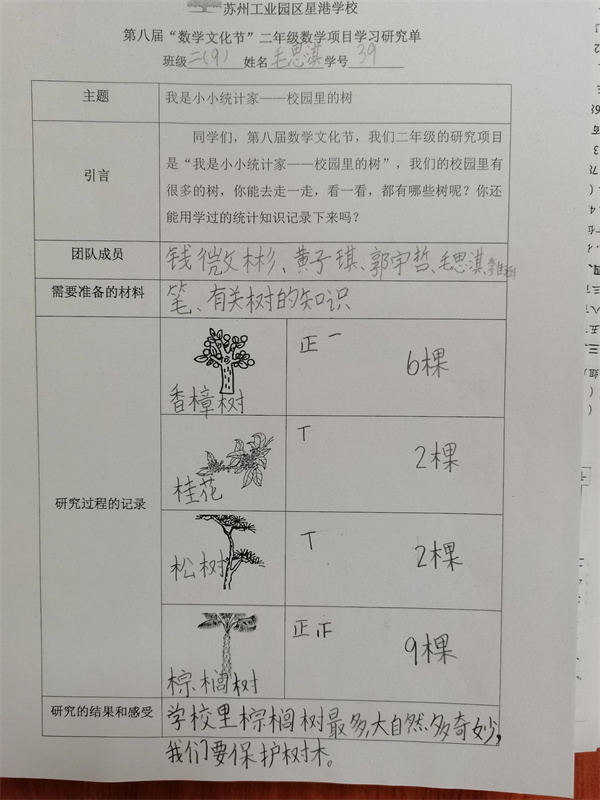 苏州工业园区星港学校
第八届“数学文化节”二年级数学项目学习研究单
班级二(9) 姓名毛思淇学号39
主题
我是小小统计家——校园里的树
引言
同学们，第八届数学文化节，我们二年级的研究项目
是“我是小小统计家——校园里的树”，我们的校园里有
很多的树，你能去走一走，看一看，都有哪些树呢？你还
能用学过的统计知识记录下来吗？
团队成员
钱微彬、黄子琪、郭宇哲、毛思淇、
需要准备的材料
笔、有关树的知识
研究过程的记录
香樟树
正一
6棵
桂花
T
2棵
松树
T
2棵
棕榈树
正正
9棵
研究的结果和感受
学校里棕榈树最多,大自然多奇妙,
我们要保护树木。